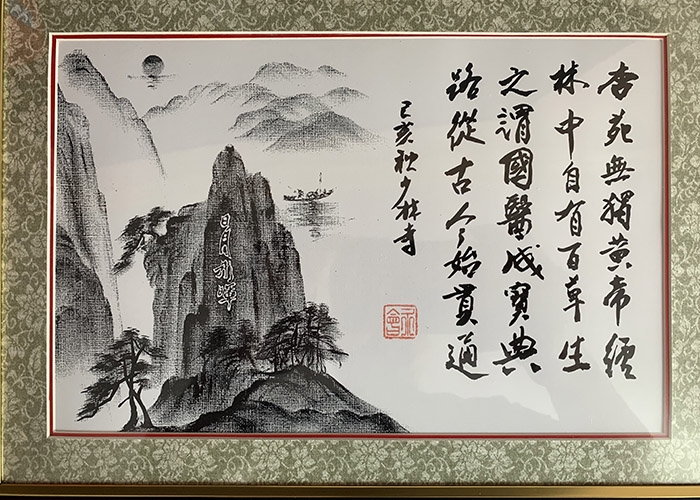 杏苑無獨黄帝經
林中自有百草生
之謂國醫成寶典
路從古今始貫通
己亥秋少林寺
日月